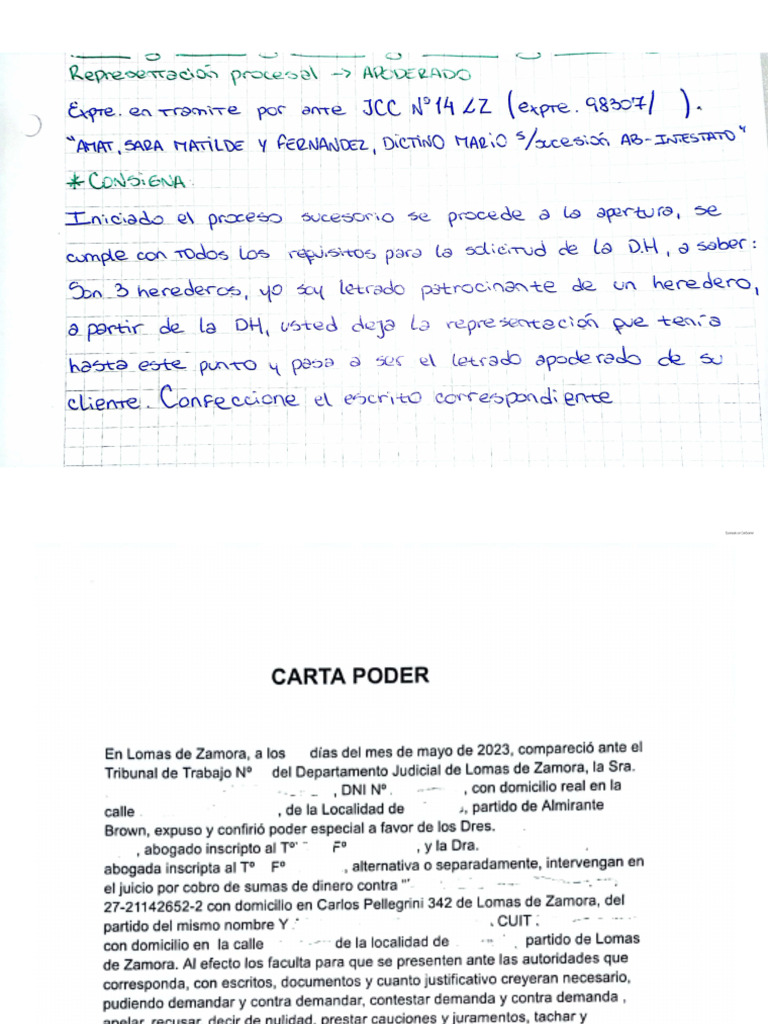 Representación procesal -> APODERADO
Expte. en tramite por ante JCC Nº14 LZ (expte. 98307/ ).
"AMAT, SARA MATILDE Y FERNANDEZ, DICTINO MARIO s/sucesión AB-INTESTATO"
* CONSIGNA:
Iniciado el proceso sucesorio se procede a la apertura, se
cumple con todos los requisitos para la solicitud de la D.H, a saber:
Son 3 herederos, yo soy letrado patrocinante de un heredero,
a partir de la DH, usted deja la representación que tenía
hasta este punto y pasa a ser el letrado apoderado de su
cliente. Confeccione el escrito correspondiente
CARTA PODER
En Lomas de Zamora, a los días del mes de mayo de 2023, compareció ante el
Tribunal de Trabajo Nº del Departamento Judicial de Lomas de Zamora, la Sra.
, DNI Nº , con domicilio real en la
calle , de la Localidad de , partido de Almirante
Brown, expuso y confirió poder especial a favor de los Dres.
, abogado inscripto al Tº Fº , y la Dra.
abogada inscripta al Tº Fº , alternativa o separadamente, intervengan en
el juicio por cobro de sumas de dinero contra "
27-21142652-2 con domicilio en Carlos Pellegrini 342 de Lomas de Zamora, del
partido del mismo nombre Y . CUIT
con domicilio en la calle de la localidad de partido de Lomas
de Zamora. Al efecto los faculta para que se presenten ante las autoridades que
corresponda, con escritos, documentos y cuanto justificativo creyeran necesario,
pudiendo demandar y contra demandar, contestar demanda y contra demanda ,
apelar, recusar, decir de nulidad, prestar cauciones y juramentos, tachar y